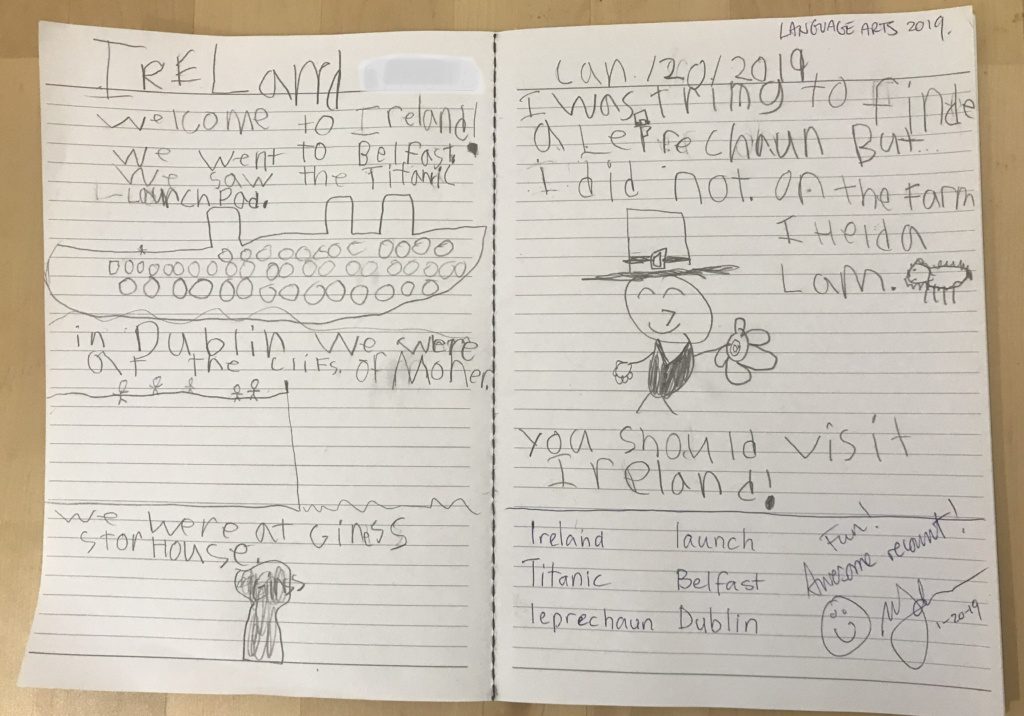 IReLand
Welcome to Ireland!
We went to Belfast.
We saw the Titanic
Launch Pad.
in Dublin We were
at the cliifs. of Moher.
We were at Giness
StorHouse.
LANGUAGE ARTS 2019.
Can. 120/2019
I was tring to finde
a Leprechaun But
i did not. on the farm
I Held a
Lam.
you should visit
Ireland!
Ireland launch
Titanic Belfast
leprechaun Dublin
Fun!
Awesome recount!
1-2019